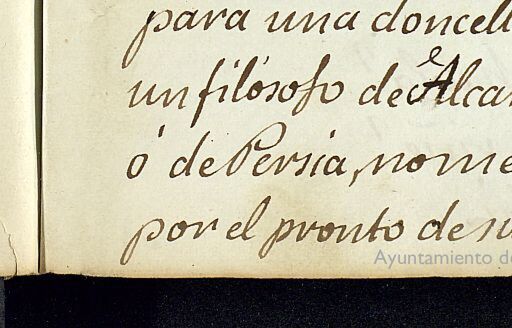 para una doncell
un filósofo de Alcar
ó de Persia, no me
por el pronto de su
Ayuntamiento de